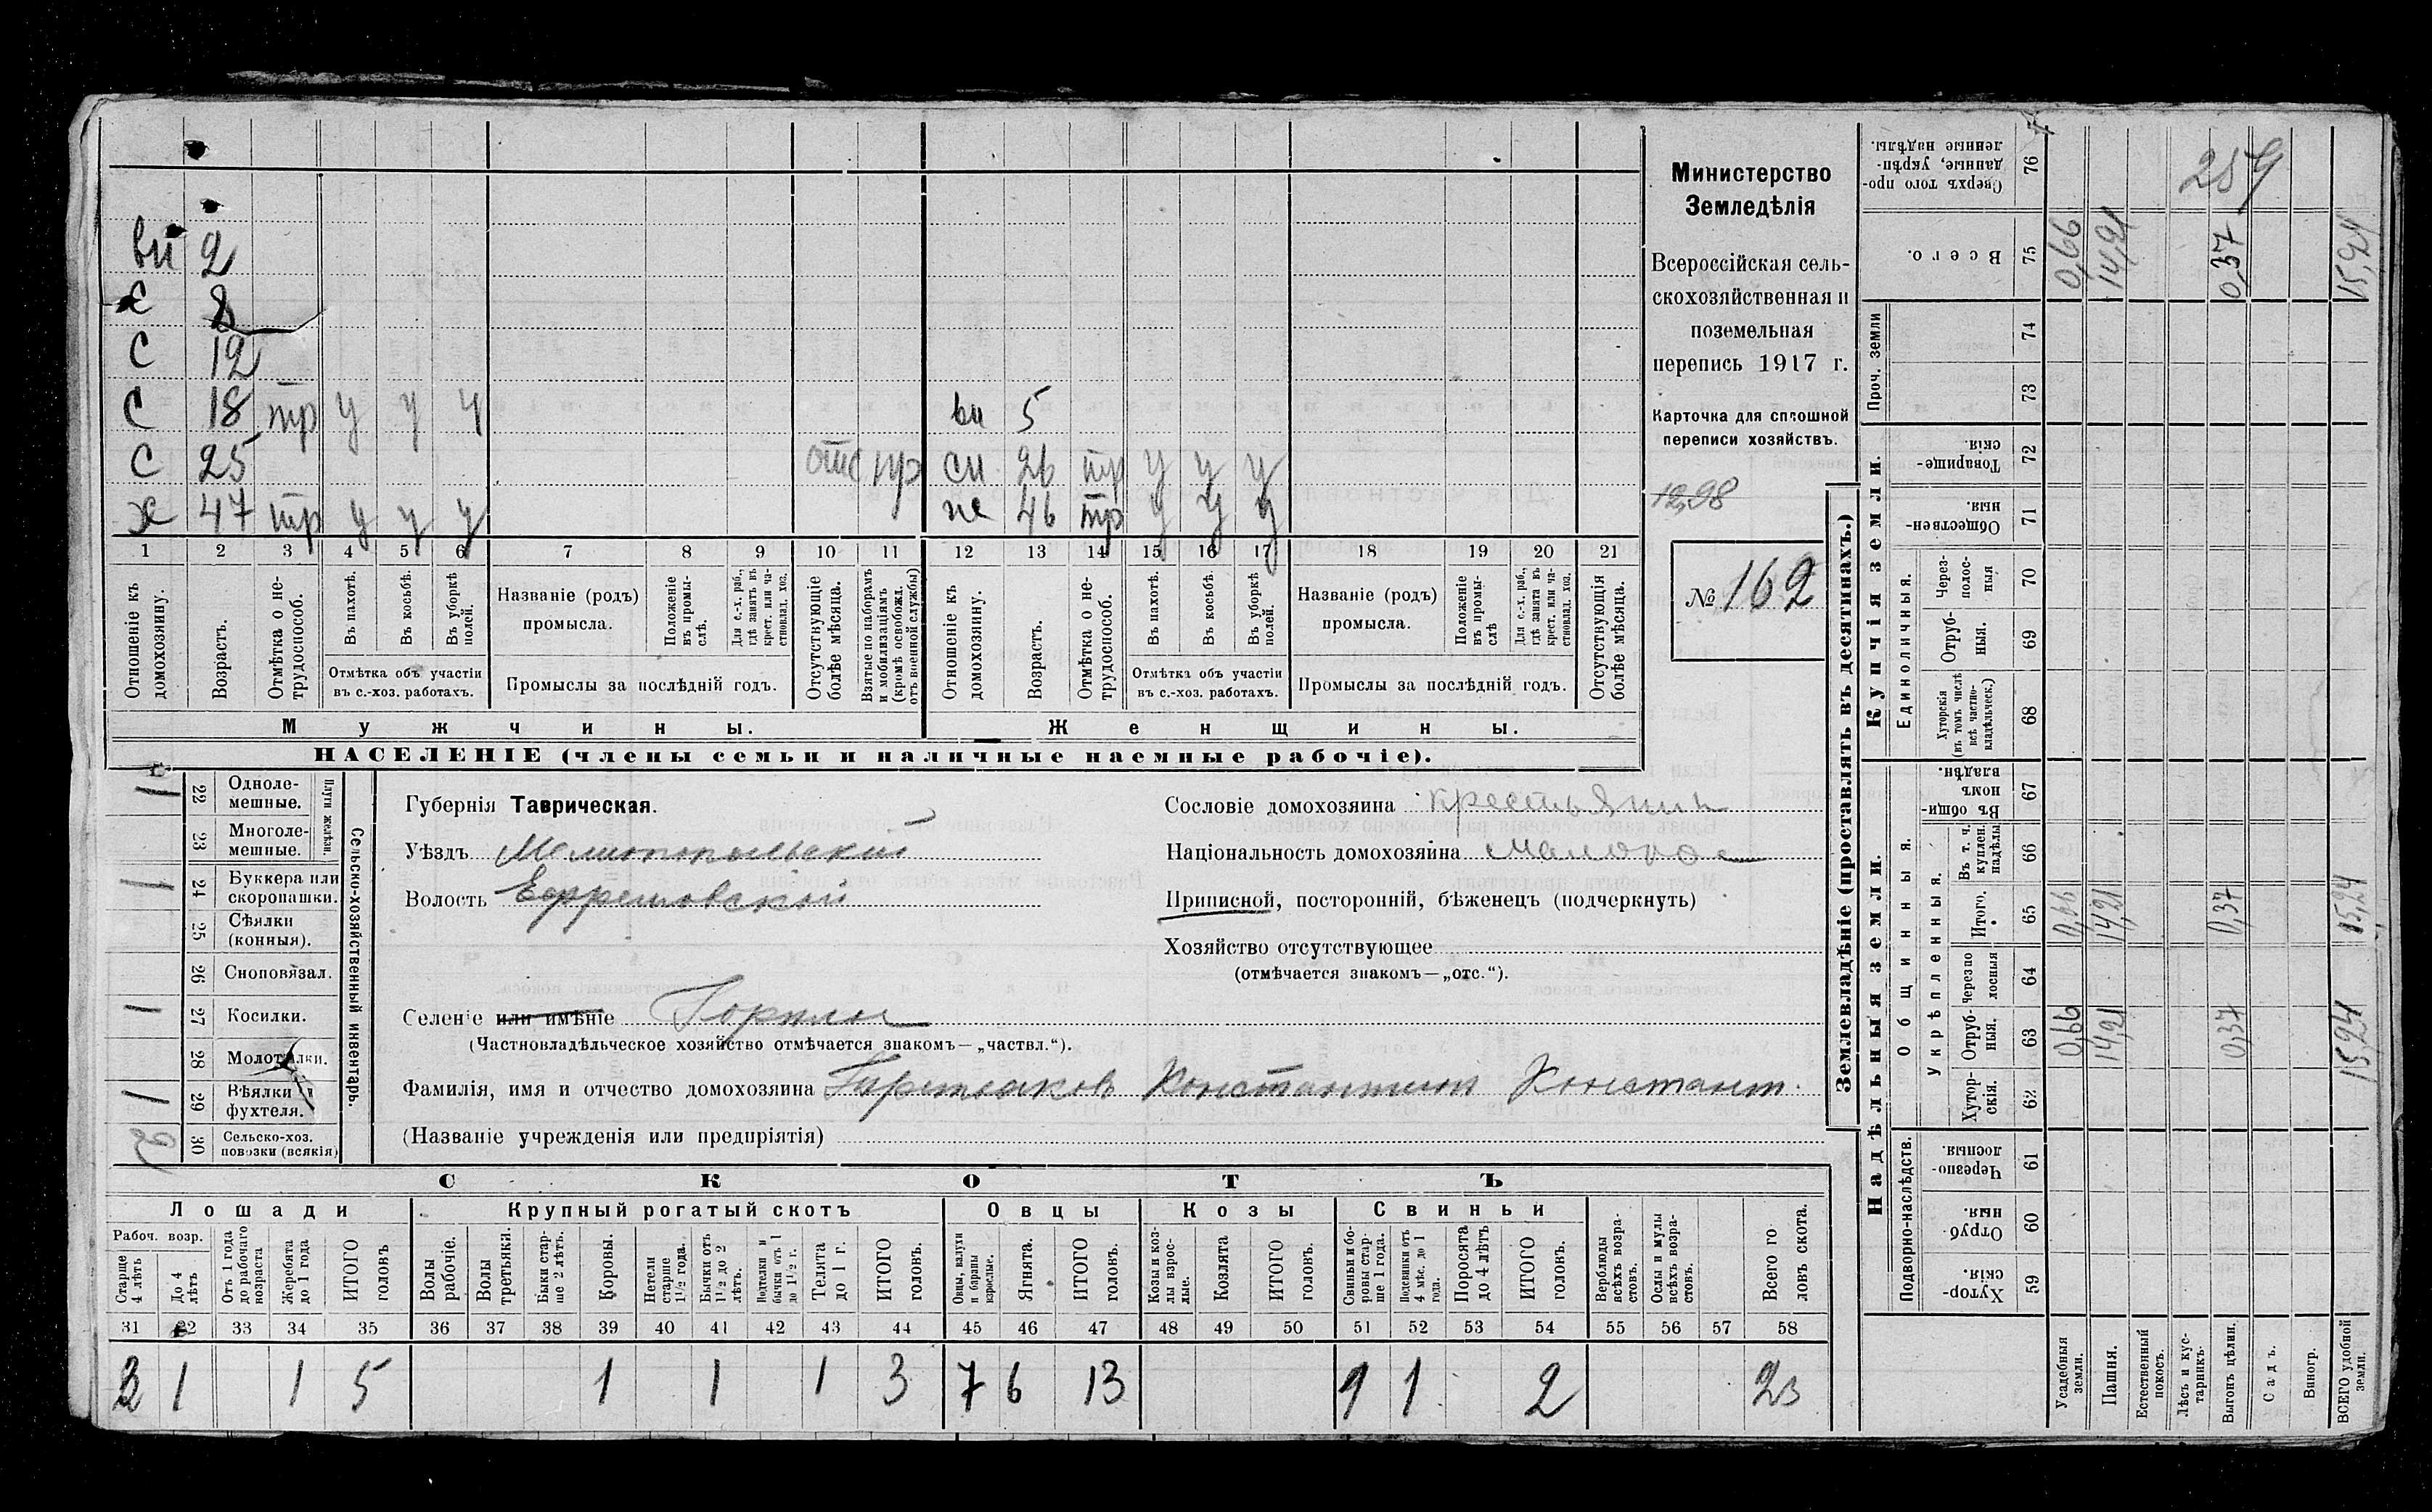 ви 2
с 8
С 12
С 18 тр у у у ви 5
С 25 отс пр сн 26 тр у у у
х 47 тр у у у же 46 тр у у у
1 2 3 4 5 6 7 8 9 10 11 12 13 14 15 16 17 18 19 20 21
Отношеніе къ домохозяину.
Возрастъ.
Отмѣтка о не-трудоспособ.
Въ пахотѣ.
Въ косьбѣ.
Въ уборкѣ полей.
Отмѣтка объ участіи въ с.-хоз. работахъ.
Названіе (родъ) промысла.
Положеніе въ промыс-лѣ.
Для с.-х. раб., гдѣ занятъ въ крест. или ча-стновлад. хоз.
Промыслы за послѣдній годъ.
Отсутствующіе болѣе мѣсяца.
Взятые по наборамъ и мобилизаціямъ (кромѣ освобожд. отъ военной службы)
Отношеніе къ домохозяину.
Возрастъ.
Отмѣтка о не-трудоспособ.
Въ пахотѣ.
Въ косьбѣ.
Въ уборкѣ полей.
Отмѣтка объ участіи въ с.-хоз. работахъ.
Названіе (родъ) промысла.
Положеніе въ промы-слѣ
Для с.-х. раб., гдѣ занята въ крест. или ча-стновлад. хоз.
Промыслы за послѣдній годъ.
Отсутствующія болѣе мѣсяца.
Мужчины. Женщины.
НАСЕЛЕНІЕ (члены семьи и наличные наемные рабочіе).
Министерство
Земледѣлія
Всероссійская сель-
скохозяйственная и
поземельная
перепись 1917 г.
Карточка для сплошной
переписи хозяйствъ.
12,98
№ 162
1 22 Одноле-мешные.
23 Многоле-мешные.
Плуги желѣзн.
1 24 Буккера или скоропашки.
25 Сѣялки (конныя).
26 Сноповязал.
1 27 Косилки.
28 Молотилки.
1 29 Вѣялки и фухтеля.
30 Сельско-хоз. повозки (всякія)
Сельско-хозяйственный инвентарь.
Губернія Таврическая.
Уѣздъ Мелитопольский
Волость Ефремовской
Сословіе домохозяина крестьянин
Національность домохозяина малорос
Приписной, посторонній, бѣженецъ (подчеркнуть)
Хозяйство отсутствующее
(отмѣчается знакомъ—„отс.“).
Селеніе или имѣніе
(Частновладѣльческое хозяйство отмѣчается знакомъ—„частвл.“).
Фамилія, имя и отчество домохозяина Константин Констант.
(Названіе учрежденія или предпріятія)
СКОТЪ
Лошади Крупный рогатый скотъ Овцы Козы Свиньи
Рабоч. возр.
Старше 4 лѣтъ
До 4 лѣтъ
Отъ 1 года до рабочаго возраста
Жеребята до 1 года
ИТОГО головъ
Волы рабочіе.
Волы третьяки.
Быки стар-ше 2 лѣтъ.
Коровы.
Нетели старше 1½ года.
Бычки отъ 1½ до 2 лѣтъ.
Подтелки и бычки отъ 1 до 1½ г.
Телята до 1 г.
ИТОГО головъ.
Овцы, валухи и бараны взрослые.
Ягнята.
ИТОГО головъ.
Козы и коз-лы взрос-лые.
Козлята
ИТОГО головъ.
Свиньи и бо-ровы стар-ше 1 года.
Подсвинки отъ 4 мѣс. до 1 года.
Поросята до 4 лѣтъ
ИТОГО головъ.
Верблюды всѣхъ возра-стовъ.
Ослы и мулы всѣхъ возра-стовъ.
Всего го ловъ скота.
31 32 33 34 35 36 37 38 39 40 41 42 43 44 45 46 47 48 49 50 51 52 53 54 55 56 57 58
3 1 1 5 1 1 1 3 7 6 13 1 1 2 23
Землевладѣніе (проставлять въ десятинахъ.)
Купчія земли.
Надѣльныя земли.
259
Сверхъ того про-данные, укрѣп-ленные надѣлы. 76
Всего. 75 0,66 14,21 0,37 15,24
Проч. земли 74
73
Товарище-скія. 72
Обществен-ныя. 71
Единоличныя.
Через-полос-ныя 70
Отруб-ныя. 69
Хуторскія (въ томъ числѣ всѣ частно-владѣльческ.) 68
Общинныя.
Въ общи-номъ владѣн. 67
Укрѣпленныя.
Въ т. ч. куплен. надѣлы 66
Итого. 65 0,66 14,21 0,37 15,24
Черезпо лосныя 64
Отруб-ныя. 63 0,66 14,21 0,37 15,24
Хутор-скія. 62
Подворно-наслѣдств.
Черезпо-лосныя. 61
Отруб-ныя. 60
Хутор-скія. 59
Усадебныя земли.
Пашня.
Естественный покосъ.
Лѣсъ и кус-тарникъ.
Выгонъ цѣлин.
Садъ.
Виногр.
ВСЕГО удобной земли.